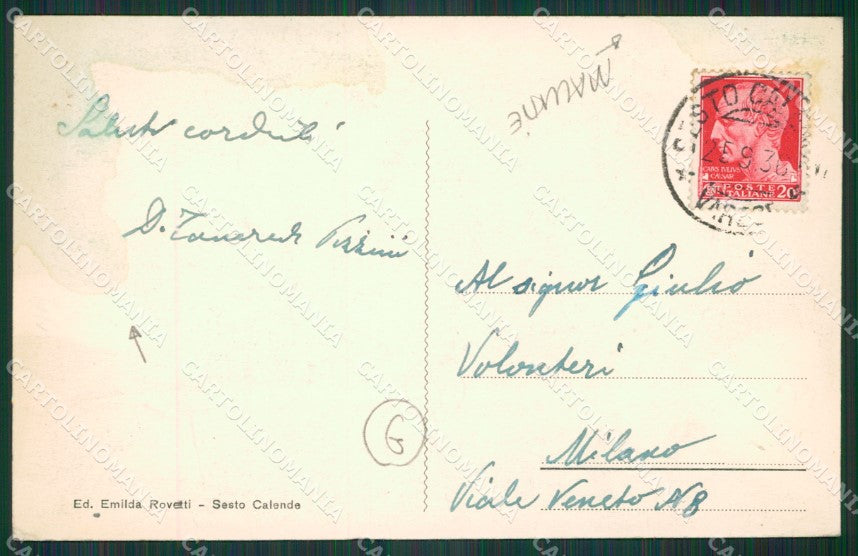 Saluti cordiali
D. Tancredi Pizzini
MACCHIE
SESTO CALENDE
25.9.30
VARESE
CAIVS IVLIVS
CAESAR
POSTE
ITALIANE 20
Al signor Giulio
Volonteri
Milano
Viale Veneto N 8
G
Ed. Emilda Rovetti - Sesto Calende
CARTOLINOMANIA